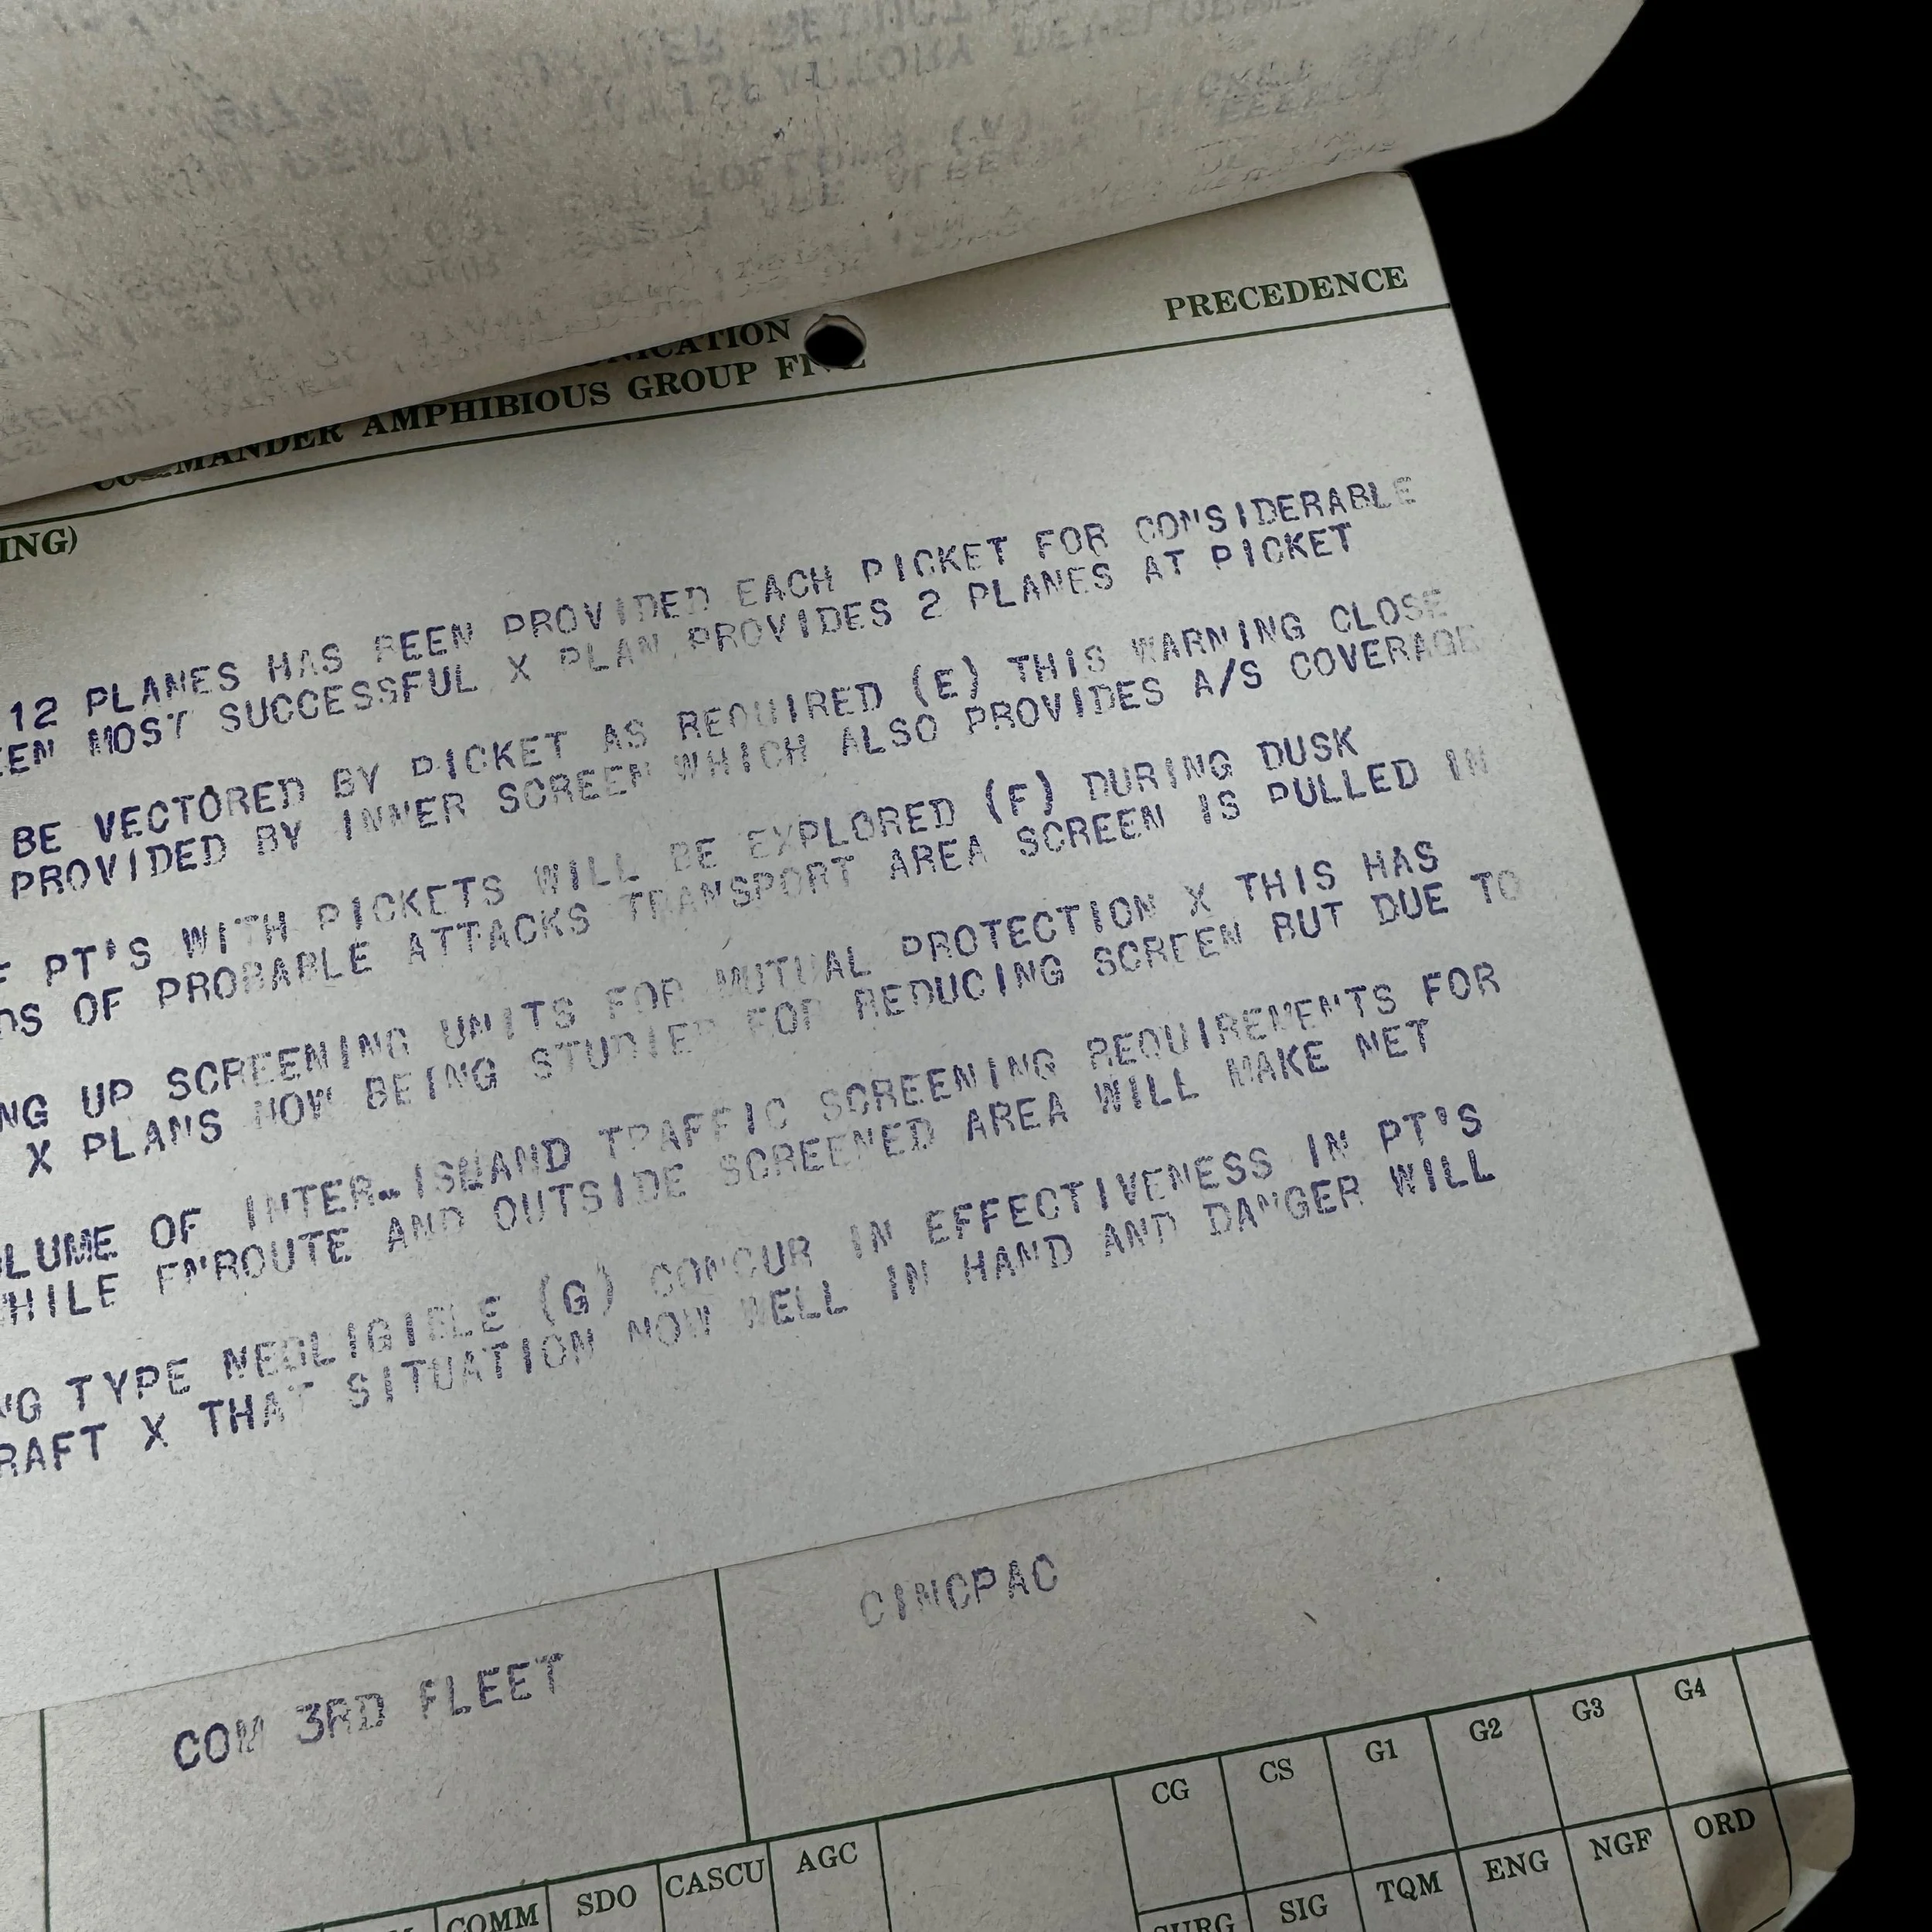 PRECEDENCE
COMMANDER AMPHIBIOUS GROUP FIVE
12 PLANES HAS BEEN PROVIDED EACH PICKET FOR CONSIDERABLE
MOST SUCCESSFUL X PLAN PROVIDES 2 PLANES AT PICKET
BE VECTORED BY PICKET AS REQUIRED (E) THIS WARNING CLOSE
PROVIDED BY INNER SCREEN WHICH ALSO PROVIDES A/S COVERAGE
PT'S WITH PICKETS WILL BE EXPLORED (F) DURING DUSK
OF PROBABLE ATTACKS TRANSPORT AREA SCREEN IS PULLED IN
UP SCREENING UNITS FOR MUTUAL PROTECTION X THIS HAS
X PLANS NOW BEING STUDIED FOR REDUCING SCREEN BUT DUE TO
OF INTER-ISLAND TRAFFIC SCREENING REQUIREMENTS FOR
ENROUTE AND OUTSIDE SCREENED AREA WILL MAKE NET
TYPE NEGLIGIBLE (G) CONCUR IN EFFECTIVENESS IN PT'S
X THAT SITUATION NOW WELL IN HAND AND DANGER WILL
COM 3RD FLEET
CINCPAC
CG CS G1 G2 G3 G4
COMM SDO CASCU AGC
SURG SIG TQM ENG NGF ORD